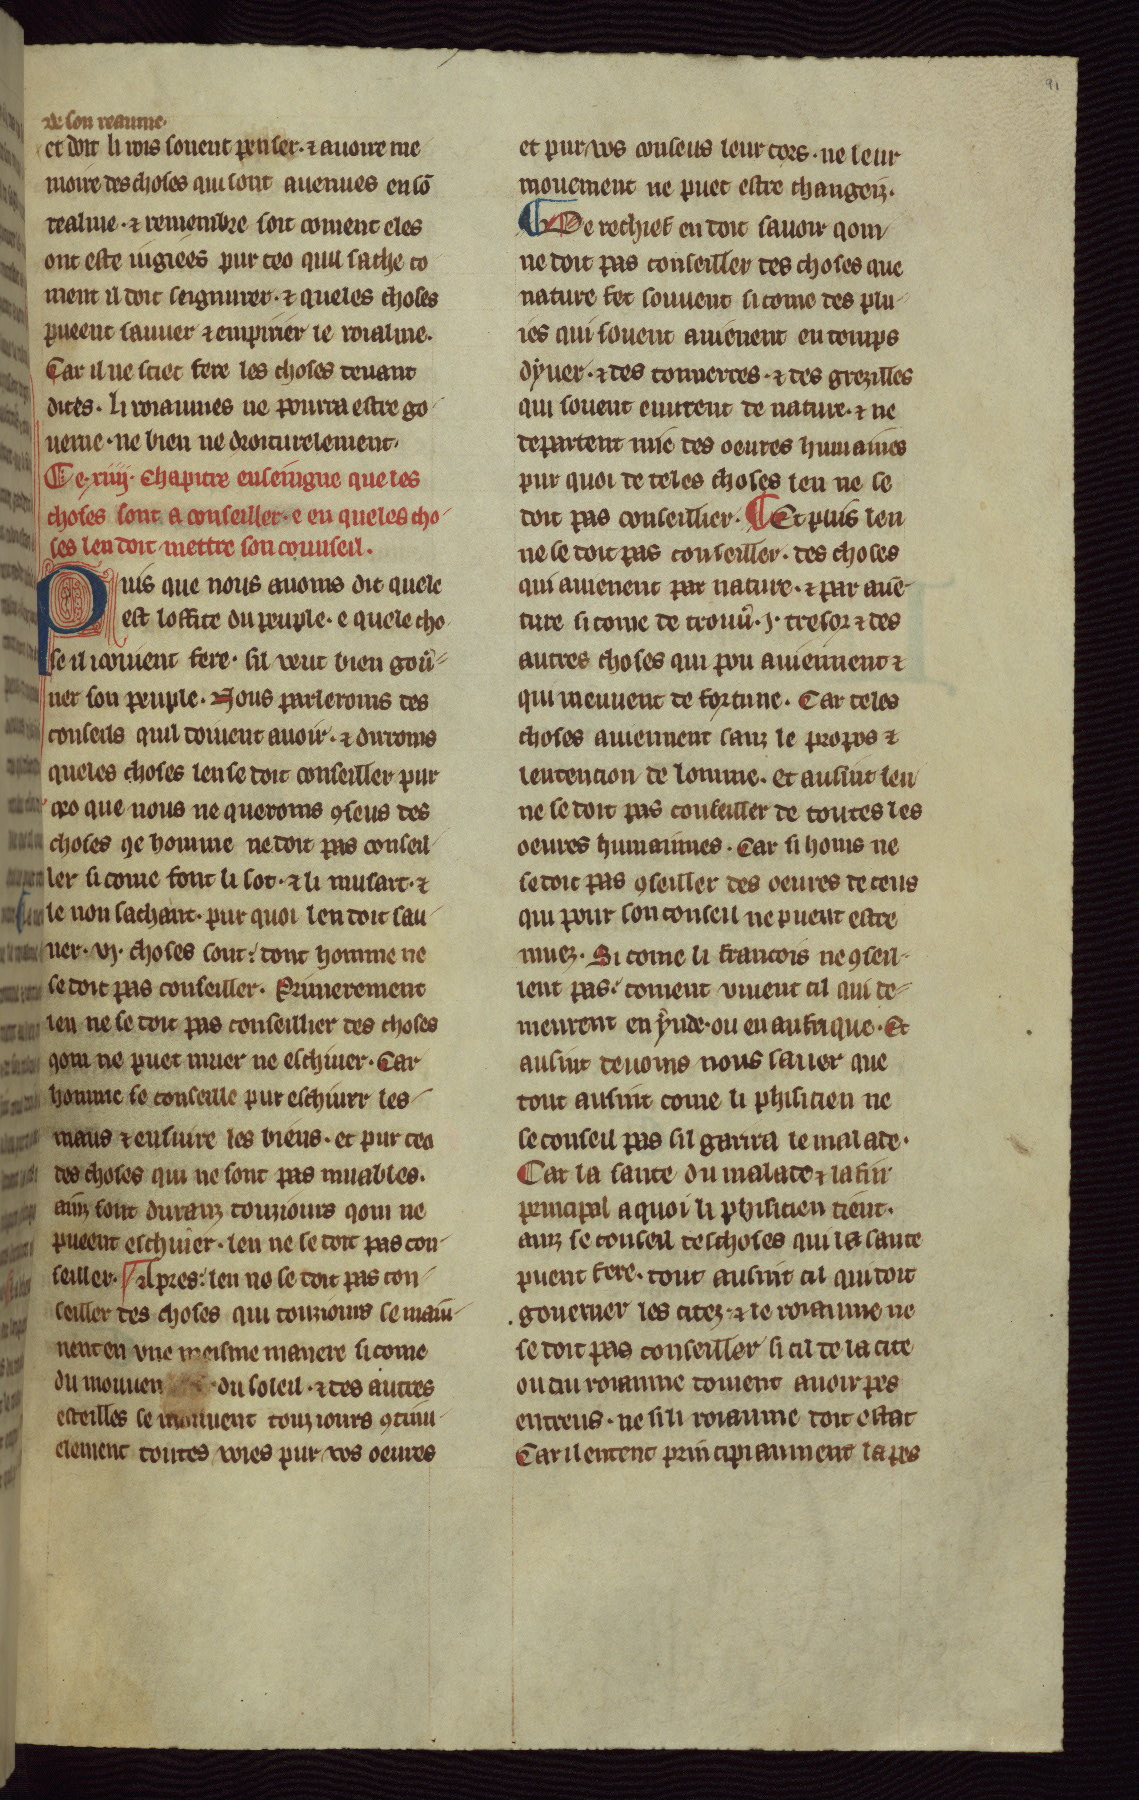 91
de son reaume.
et doit li rois souent penser. ⁊ auoire me
moire des choses qui sont auenues en sō
realme. ⁊ remembre soit coment eles
ont este iugiees pur ceo quil sache co
ment il doit seignurer. ⁊ queles choses
pueent sauuer ⁊ empirier le roialme.
Car il ne sciet fere les choses deuant
dites. li roiaumes ne pourra estre go
uerne. ne bien ne droiturelement.
¶ e. xiiij. chapitre enseingne que les
choses sont a conseiller. e en queles cho
ses len doit mettre son counseil.
Puis que nous auoms dit quele
est loffice du peuple. e quele cho
se il icouient fere. sil veut bien gou̾
ner son peuple. Nous parleroms des
conseils quil doiuent auoir. ⁊ diroms
queles choses len se doit conseiller pur
ceo que nous ne queroms ꝯseus des
choses qe homme ne doit pas conseil
ler si come font li sot. ⁊ li musart. ⁊
le non sachant. pur quoi len doit sau
uer. vj. choses sont: dont homme ne
se doit pas conseiller. Primerement
len ne se doit pas conseillier des choses
qom ne puet muer ne eschiuer. Car
homme se conseille pur eschiurr les
maus ⁊ ensiure les biens. et pur ceo
des choses qui ne sont pas muables.
ainz sont duranz touziours qom ne
pueent eschiuer. len ne se doit pas con
seiller. ¶ Apres: len no se doit pas con
seiller des choses qui touziours se main̄
nent en vne meisme manere si come
du mouuen du soleil. ⁊ des autres
esteilles se mouuent touz iours ꝯtinu
element toutes voies pur vos oeures
et pur vos conseus leur cors. ne leur
mouement ne puet estre changeiz.
¶ De rechief en doit sauoir qom
ne doit pas conseiller des choses que
nature fet souuent si come des plu
ies qui souent auienent en temps
dyuer. ⁊ des tonnerres. ⁊ des grezilles
qui souent euurent de nature. ⁊ ne
departent mie des oeures humaines
pur quoi de teles choses len ne se
doit pas conseillier. ¶ Et plus len
ne se doit pas conseiller. des choses
qui auienent par nature. ⁊ par auē
ture si come de trouu̾. j. tresor ⁊ des
autres choses qui pou auiennent ⁊
qui meuuent de fortune. Car teles
choses auiennent sanz le propos ⁊
lentencion de lomme. et ausint len
ne se doit pas conseiller de toutes les
oeures humainnes. Car si homs ne
se doit pas ꝯseiller des oeures de ceus
qui pour son conseil ne puent estre
muez. Si come li francois ne ꝯseil
lent pas: coment viuent cil qui de
meurent en ynde. ou en aufrique. Et
ausint deuoms nous sauer que
tout ausint come li phisicien ne
se conseil pas sil garira le malade.
Car la sante du malade ⁊ la fin
principal a quoi li phisicien tient.
ainz se conseil de schoses qui la sante
puent fere. tout ausint cil qui doit
gouerner les citez. ⁊ le roiaume ne
se doit pas conseiller si cil de la cite
ou du roiaume doment auoir pes
entreus. ne si li roiaume doit estat
Car il entent principiaument la pes